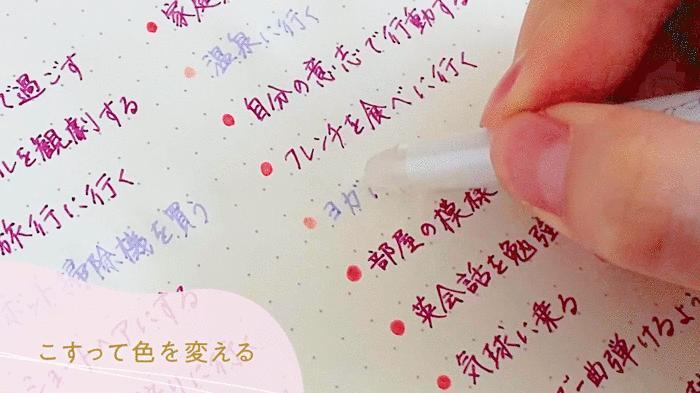 で過ごす
ルを観劇する
旅行に行く
ボット掃除機を買う
家庭
温泉に行く
自分の意志で行動する
フレンチを食べに行く
ヨガ
部屋の模様
英会話を勉強
気球に乗る
一曲弾けるよ
こすって色を変える